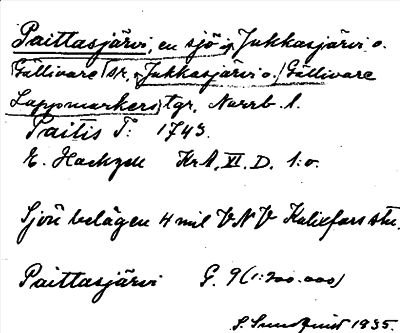 Paittasjärvi, en sjö i Jukkasjärvi o.
Gällivare sr, Jukkasjärvi o. Gällivare
Lappmarkers tgr, Norrb. l.
Paitis T: 1743.
E. Hackzell KrA, VI. D. 1:o.
Sjön belägen 4 mil VNV Kalixfors stn.
Paittasjärvi G. 9 (1:200.000)
S. Sundquist 1935.